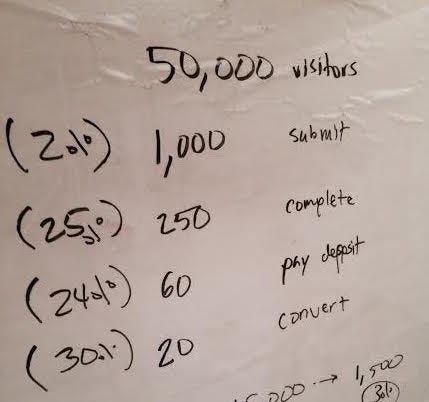 50,000 visitors
(2%) 1,000 submit
(25%) 250 complete
(24%) 60 pay deposit
(30%) 20 convert
5,000 → 1,500
(3%)